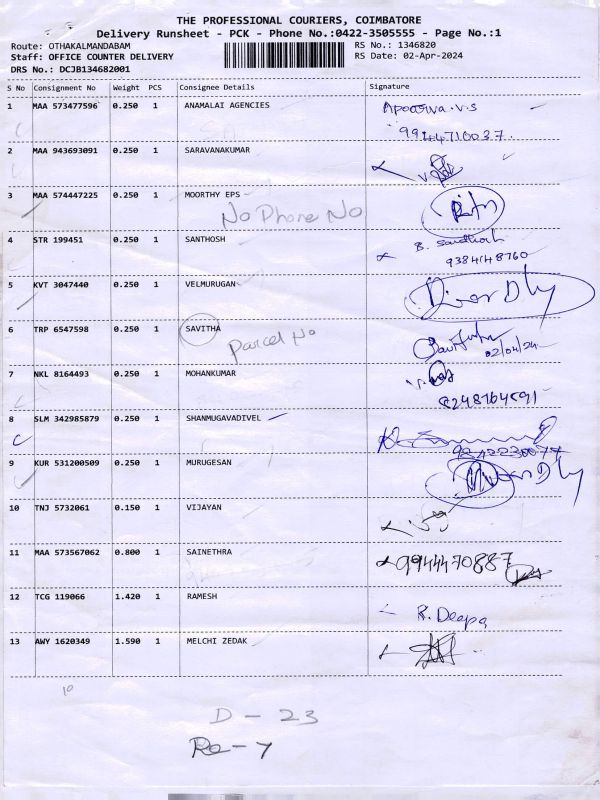 THE PROFESSIONAL COURIERS, COIMBATORE
Delivery Runsheet - PCK - Phone No.:0422-3505555 - Page No.:1
Route: OTHAKALMANDABAM
RS No.: 1346820
Staff: OFFICE COUNTER DELIVERY
RS Date: 02-Apr-2024
DRS No.: DCJB134682001
S No Consignment No Weight PCS Consignee Details Signature
1 MAA 573477596 0.250 1 ANAMALAI AGENCIES Apoorva.v.s
9944710037.
2 MAA 943693091 0.250 1 SARAVANAKUMAR
3 MAA 574447225 0.250 1 MOORTHY EPS
No Phone No
4 STR 199451 0.250 1 SANTHOSH B. Santhosh
9384148760
5 KVT 3047440 0.250 1 VELMURUGAN Door Dly
6 TRP 6547598 0.250 1 SAVITHA
Parcel No
02/04/24
7 NKL 8164493 0.250 1 MOHANKUMAR
8248764591
8 SLM 342985879 0.250 1 SHANMUGAVADIVEL
9842230077
9 KUR 531200509 0.250 1 MURUGESAN Door Dly
10 TNJ 5732061 0.150 1 VIJAYAN
11 MAA 573567062 0.800 1 SAINETHRA 9944470887
12 TCG 119066 1.420 1 RAMESH R. Deepa
13 AWY 1620349 1.590 1 MELCHI ZEDAK
10
D - 23
Re - 7